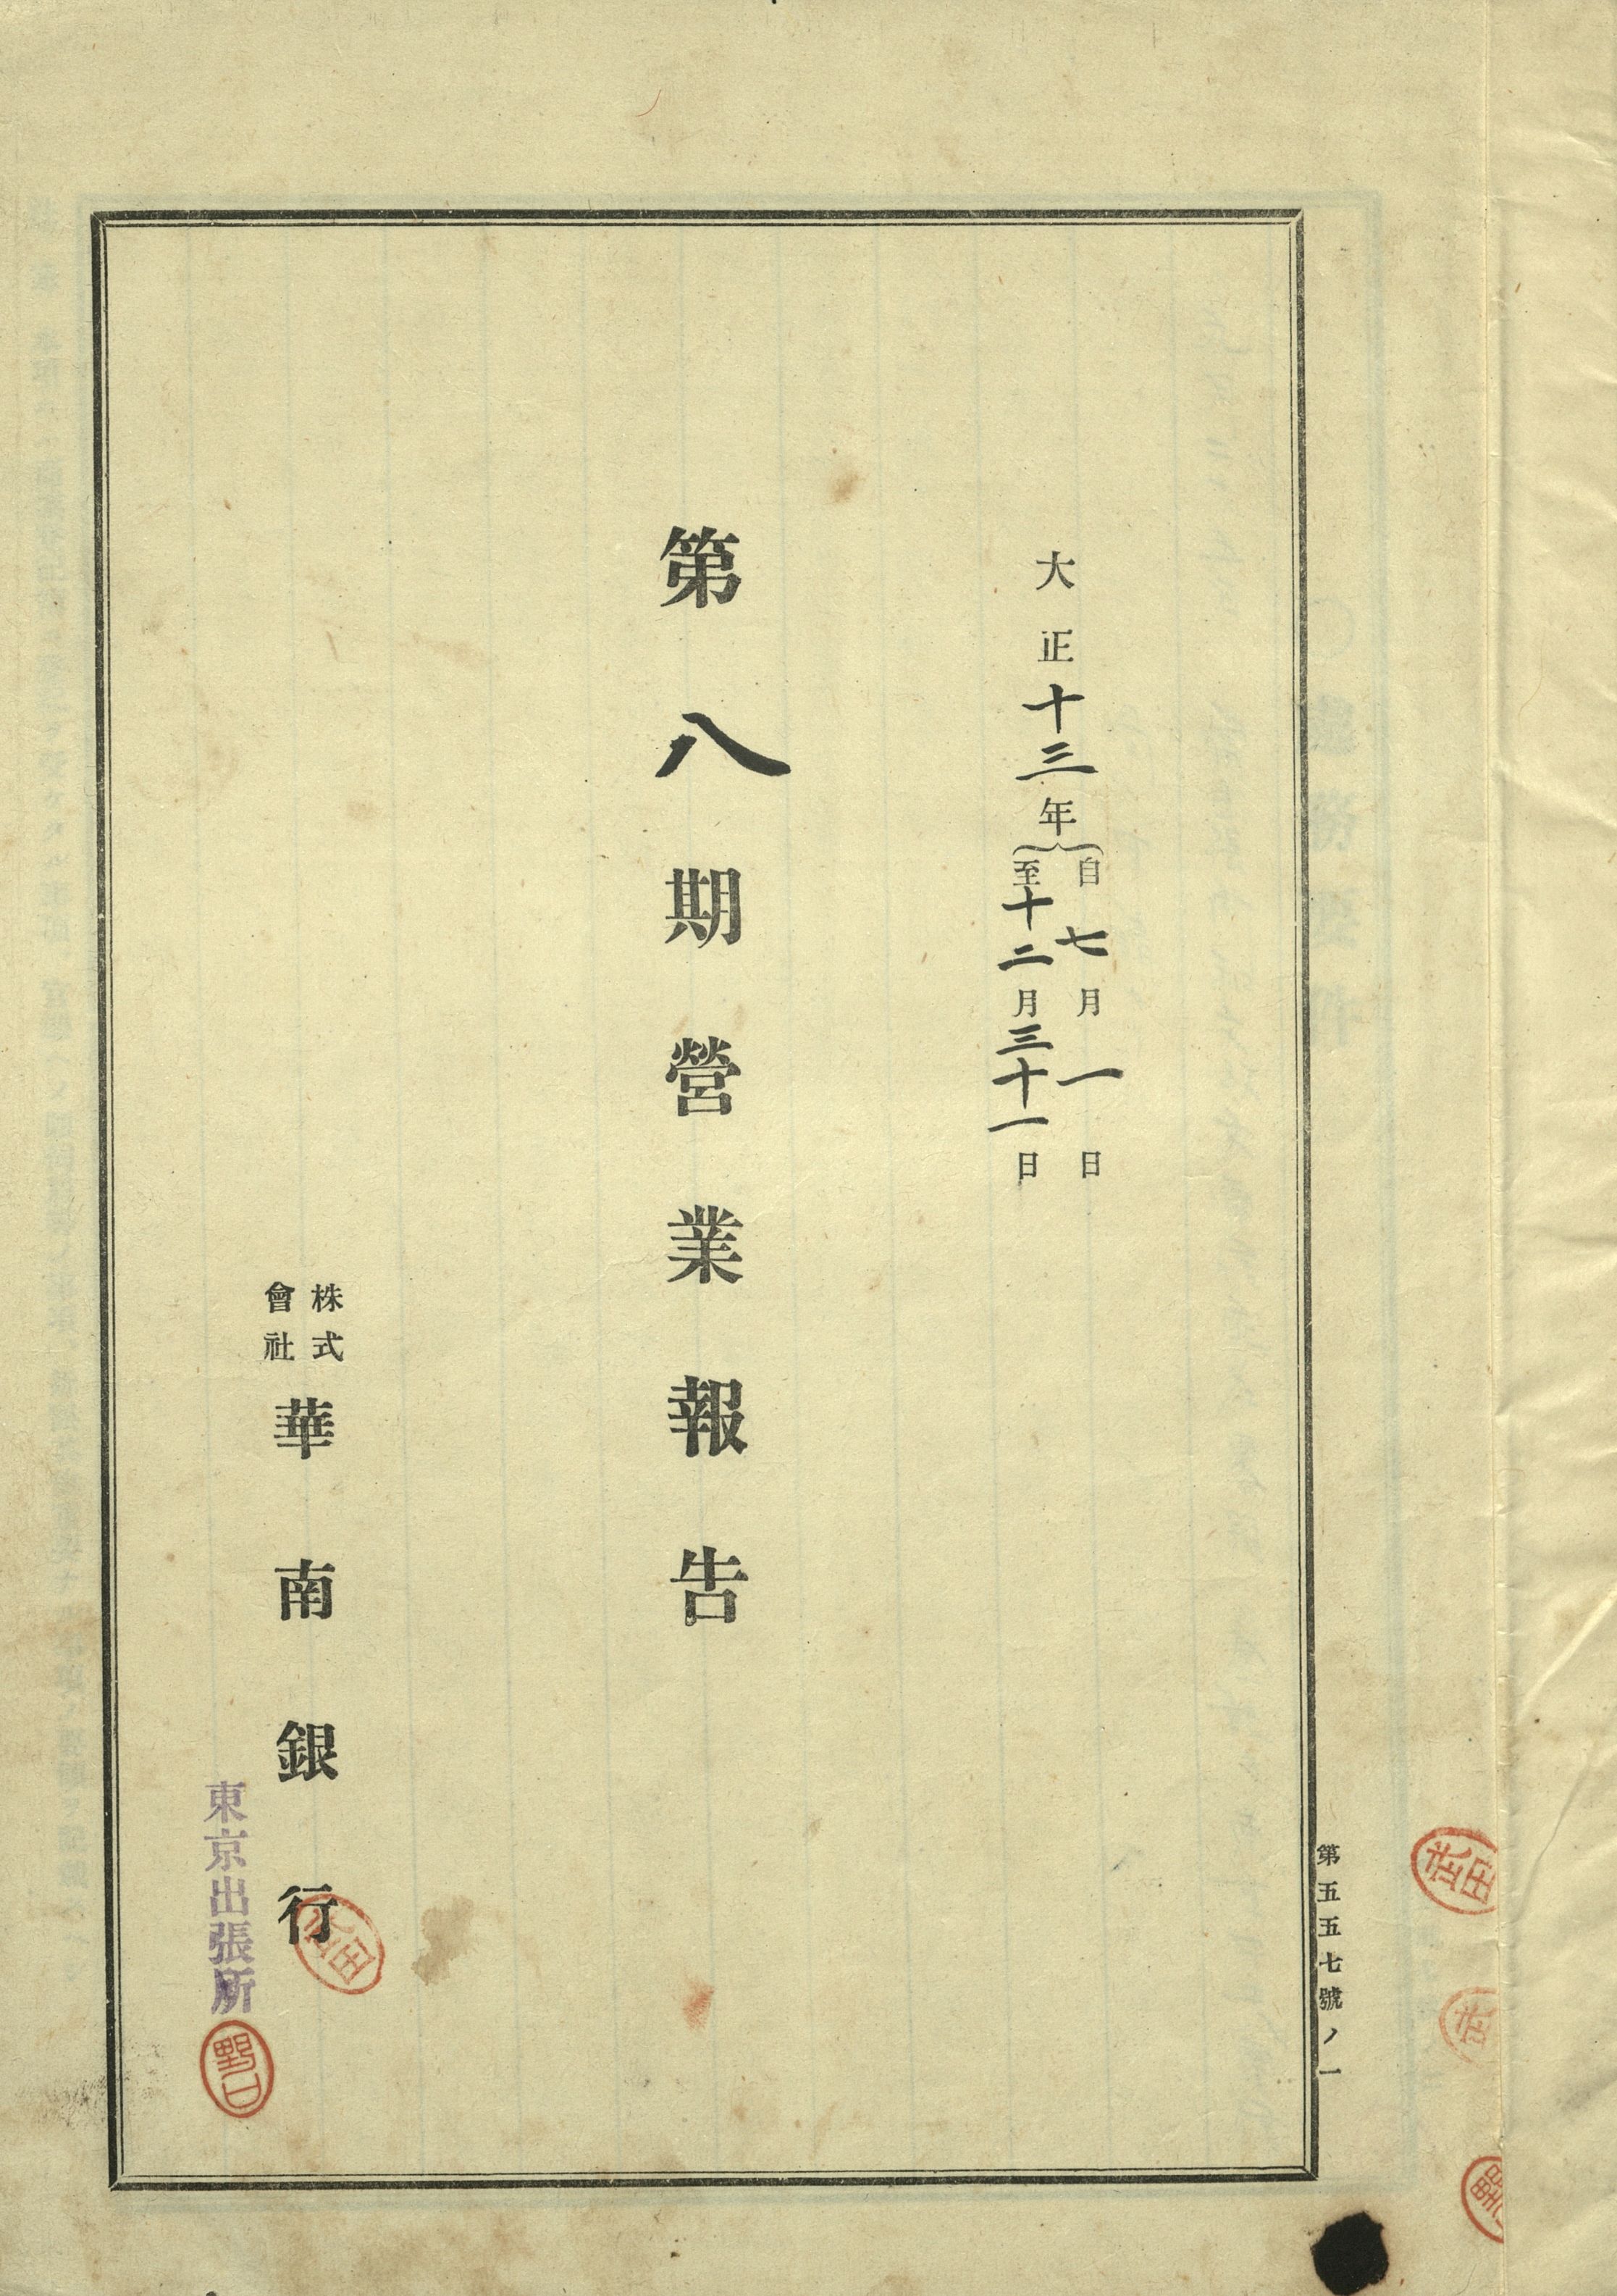 大正十三年
自七月一日
至十二月三十一日
第八期營業報告
株式
會社
華南銀行
東京出張所
野口
武田
第五五七號ノ一
武田
武
野